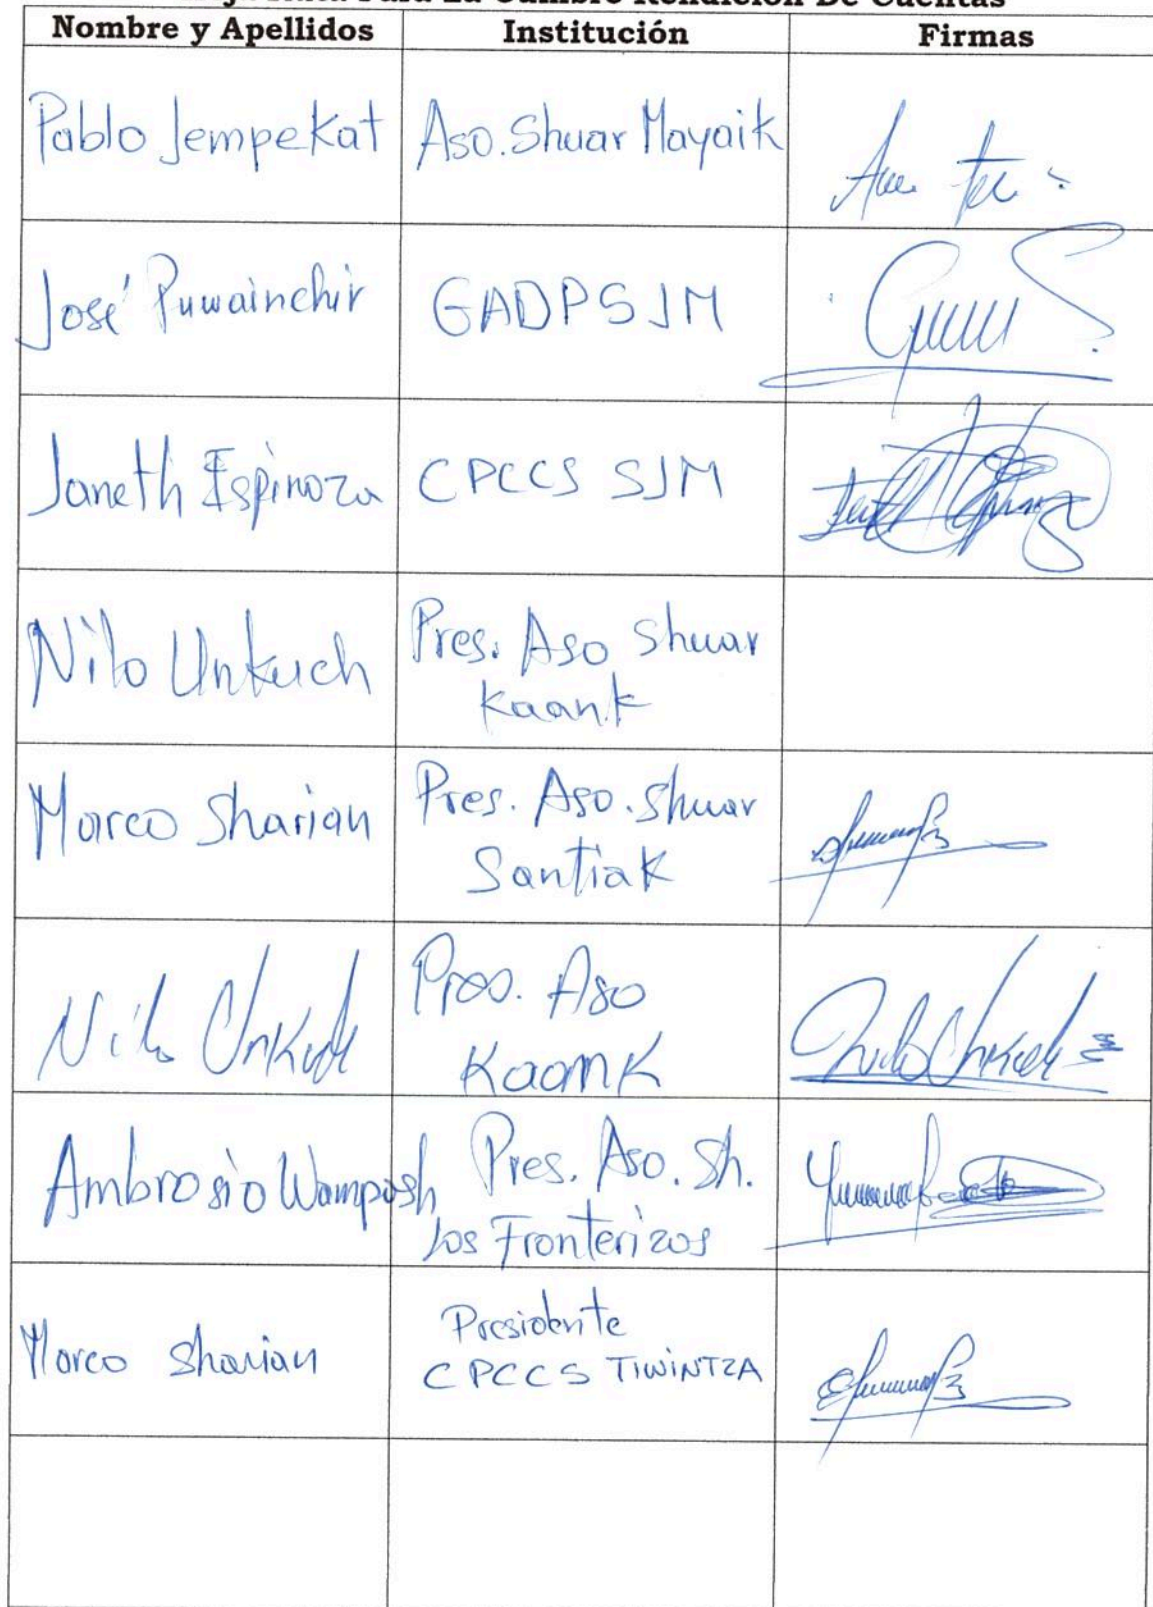 Para La Cumbre Rendición De Cuentas
Nombre y Apellidos Institución Firmas
Pablo Jempekat Aso. Shuar Mayaik
José Puwainchir GADPSJM
Janeth Espinoza CPCCS SJM
Nilo Unkuch Pres. Aso Shuar
Kaank
Marco Sharian Pres. Aso. Shuar
Santiak
Nilo Unkuch Pres. Aso
Kaank
Ambrosio Wampash Pres. Aso. Sh.
Los Fronterizos
Marco Sharian Presidente
CPCCS TIWINTZA